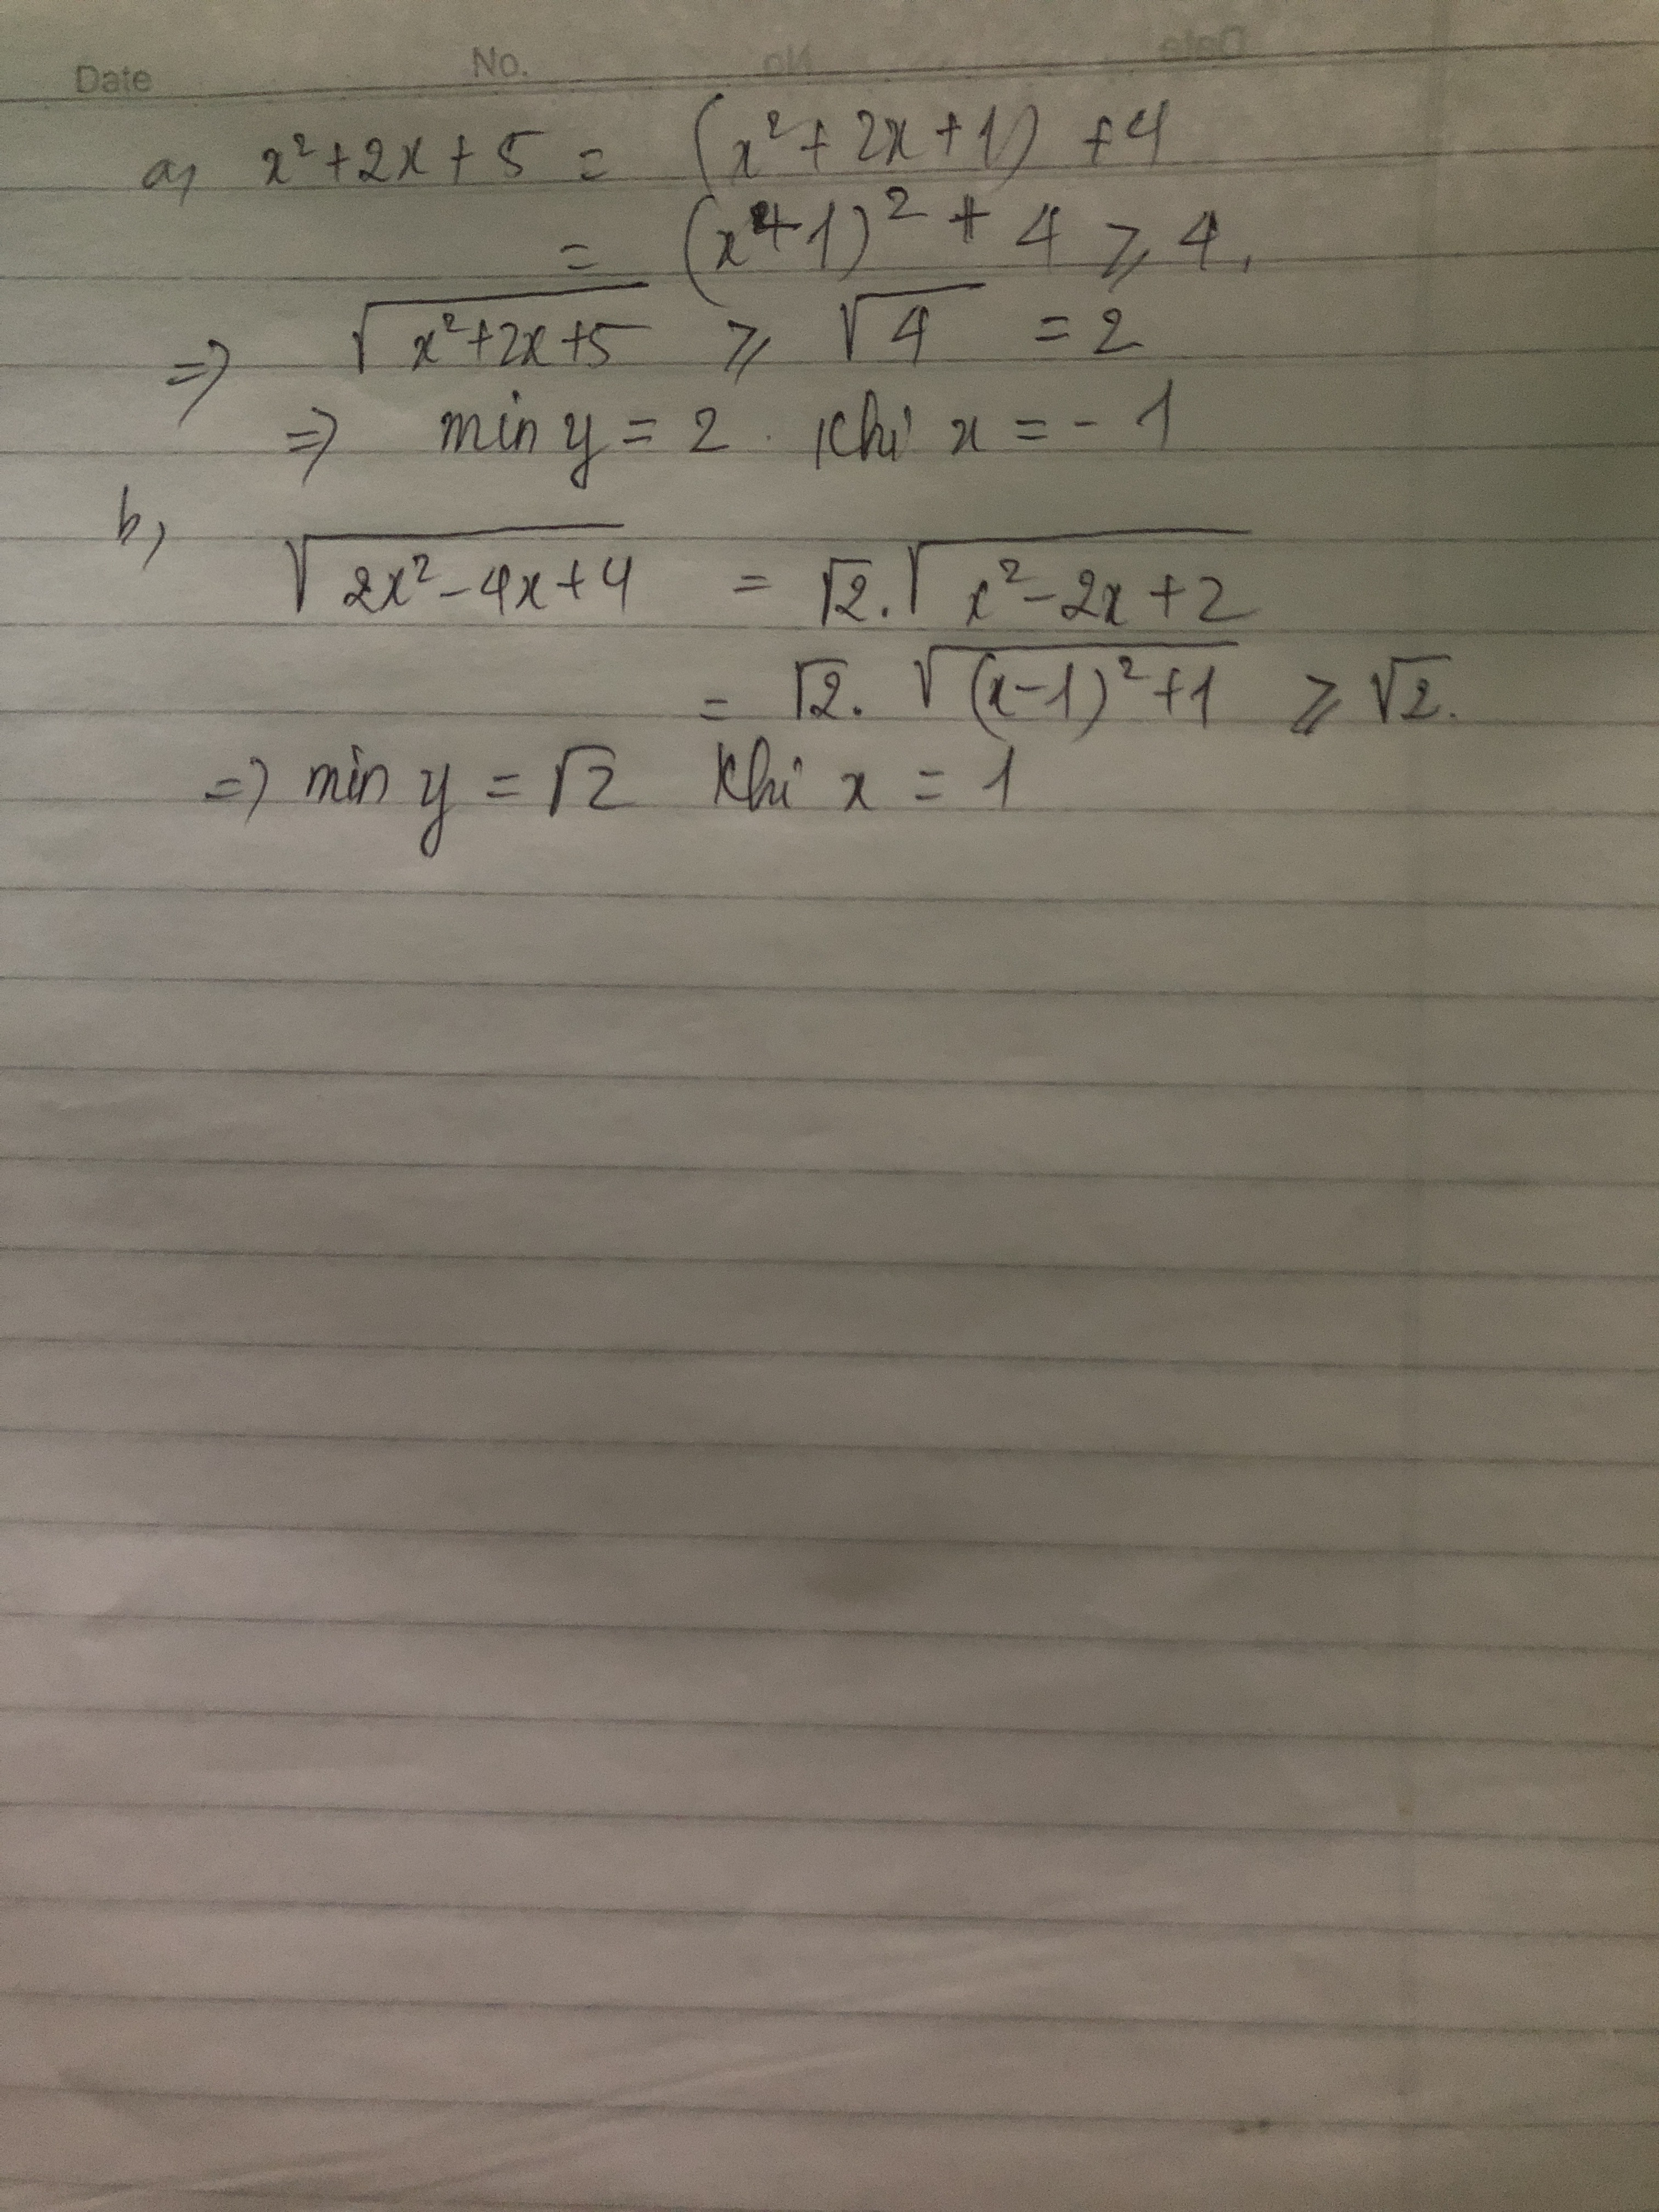 Date No. No Date
a, x²+2x+5 = (x²+2x+1) +4
= (x+1)² + 4 ⩾ 4.
=> √(x²+2x+5) ⩾ √4 = 2
=> min y = 2 khi x = -1
b,
√(2x²-4x+4) = √2.√(x²-2x+2)
= √2. √((x-1)²+1) ⩾ √2.
=> min y = √2 khi x = 1